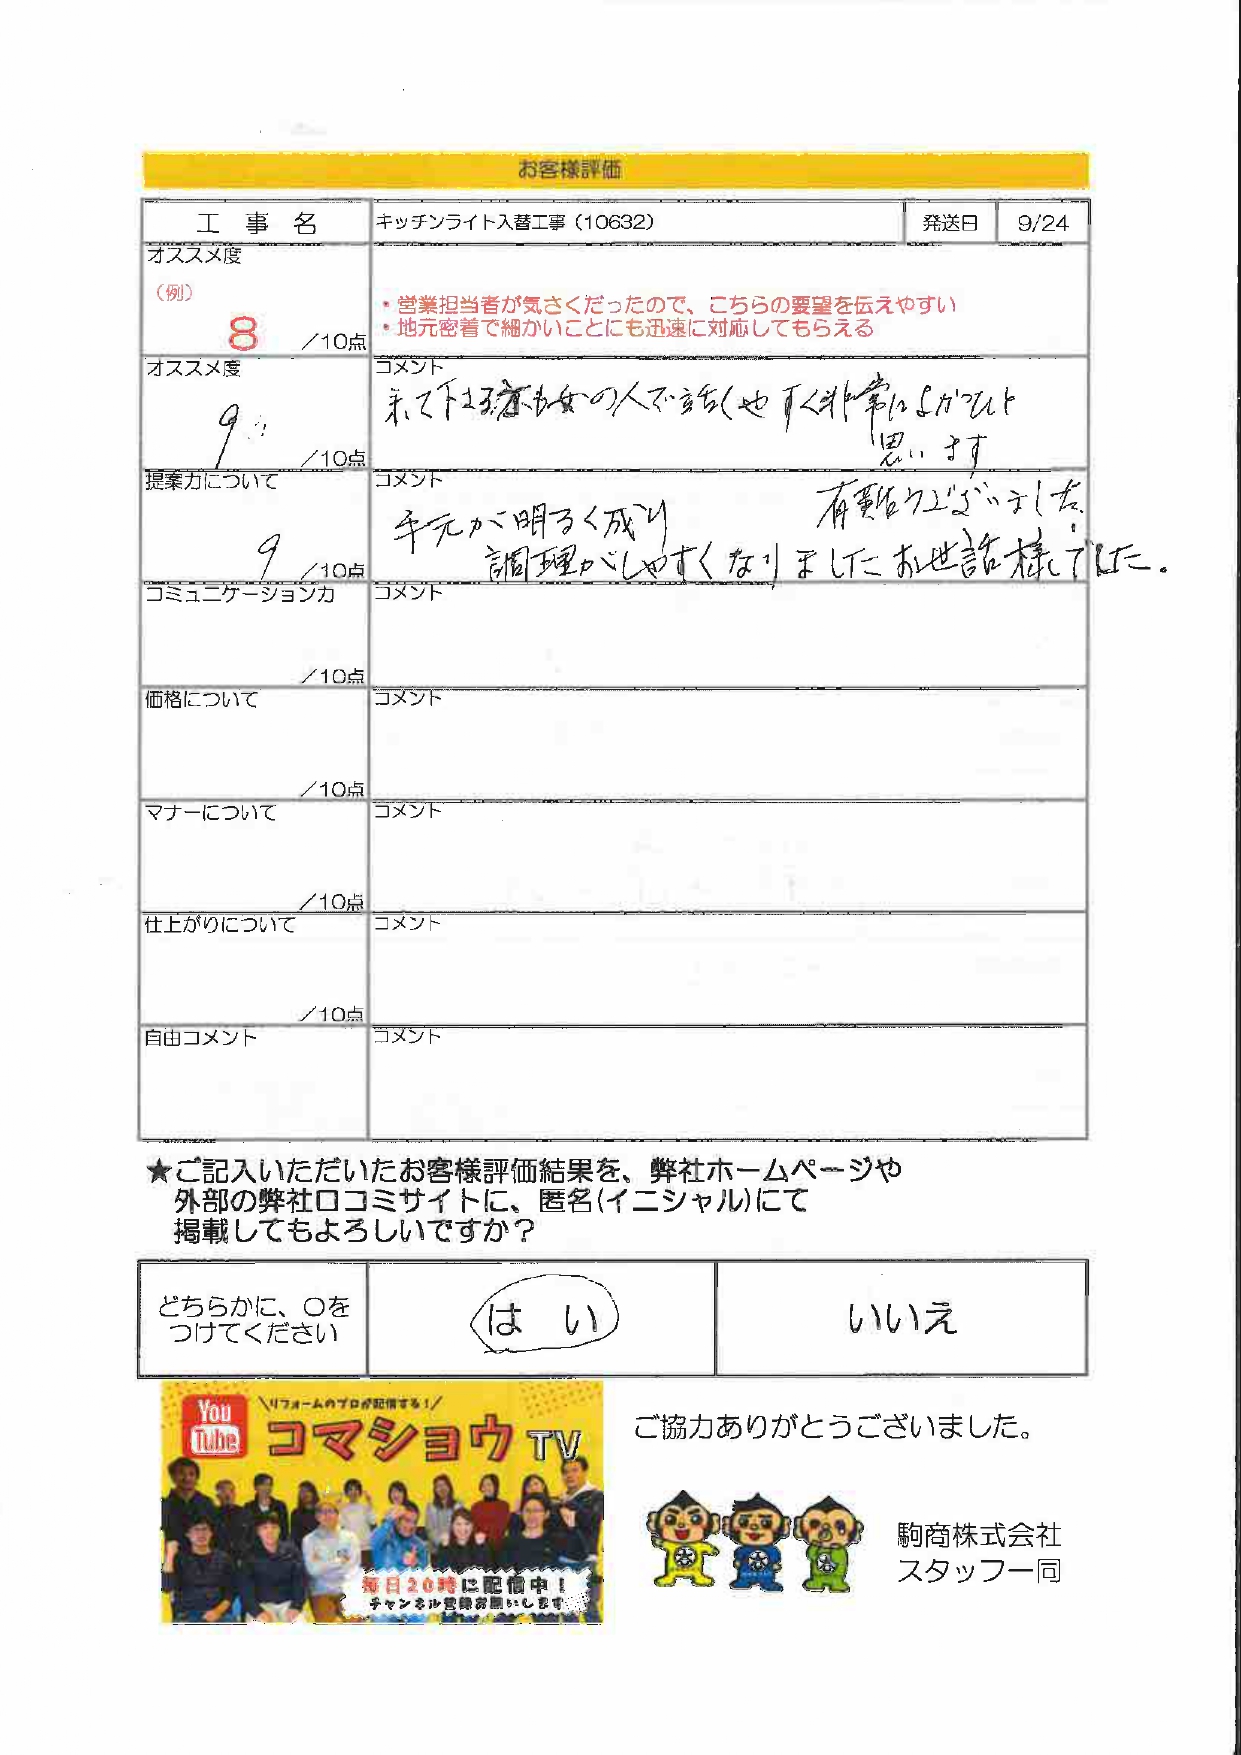 お客様評価
工 事 名 キッチンライト入替工事（10632） 発送日 9/24
オススメ度
（例）
8 ／10点
・営業担当者が気さくだったので、こちらの要望を伝えやすい
・地元密着で細かいことにも迅速に対応してもらえる
オススメ度 コメント
9 ／10点
来て下さる方も女の人で話しやすく非常によかったと
思います
提案力について コメント
9 ／10点
有難うございました
手元が明るく成り
調理がしやすくなりましたお世話様でした。
コミュニケーション力 コメント
／10点
価格について コメント
／10点
マナーについて コメント
／10点
仕上がりについて コメント
／10点
自由コメント コメント
★ご記入いただいたお客様評価結果を、弊社ホームページや
外部の弊社口コミサイトに、匿名(イニシャル)にて
掲載してもよろしいですか？
どちらかに、〇を
つけてください
は い
いいえ
You
Tube
＼リフォームのプロが配信する！／
コマショウTV
毎日20時に配信中！
チャンネル登録お願いします
ご協力ありがとうございました。
駒商株式会社
スタッフ一同